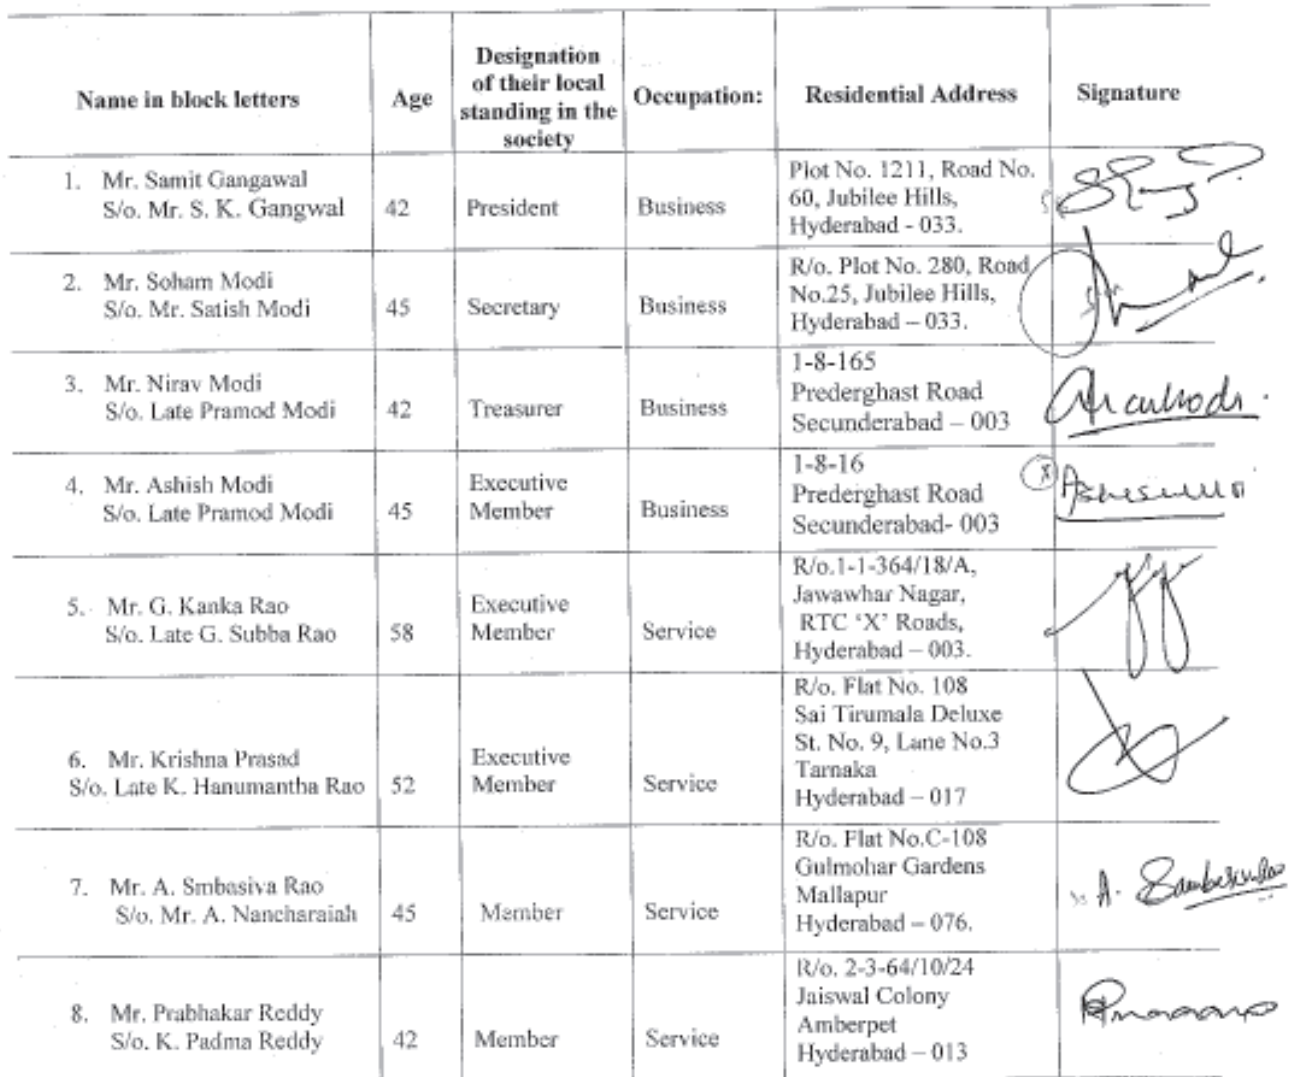 Name in block letters
Age
Designation
of their local
standing in the
society
Occupation:
Residential Address
Signature
1. Mr. Samit Gangawal
S/o. Mr. S. K. Gangwal
42
President
Business
Plot No. 1211, Road No.
60, Jubilee Hills,
Hyderabad - 033.
2. Mr. Soham Modi
S/o. Mr. Satish Modi
45
Secretary
Business
R/o. Plot No. 280, Road
No.25, Jubilee Hills,
Hyderabad – 033.
3. Mr. Nirav Modi
S/o. Late Pramod Modi
42
Treasurer
Business
1-8-165
Prederghast Road
Secunderabad – 003
4. Mr. Ashish Modi
S/o. Late Pramod Modi
45
Executive
Member
Business
1-8-16
Prederghast Road
Secunderabad- 003
5. Mr. G. Kanka Rao
S/o. Late G. Subba Rao
58
Executive
Member
Service
R/o.1-1-364/18/A,
Jawawhar Nagar,
RTC ‘X’ Roads,
Hyderabad – 003.
6. Mr. Krishna Prasad
S/o. Late K. Hanumantha Rao
52
Executive
Member
Service
R/o. Flat No. 108
Sai Tirumala Deluxe
St. No. 9, Lane No.3
Tarnaka
Hyderabad – 017
7. Mr. A. Smbasiva Rao
S/o. Mr. A. Nancharaiah
45
Member
Service
R/o. Flat No.C-108
Gulmohar Gardens
Mallapur
Hyderabad – 076.
A.
8. Mr. Prabhakar Reddy
S/o. K. Padma Reddy
42
Member
Service
R/o. 2-3-64/10/24
Jaiswal Colony
Amberpet
Hyderabad – 013